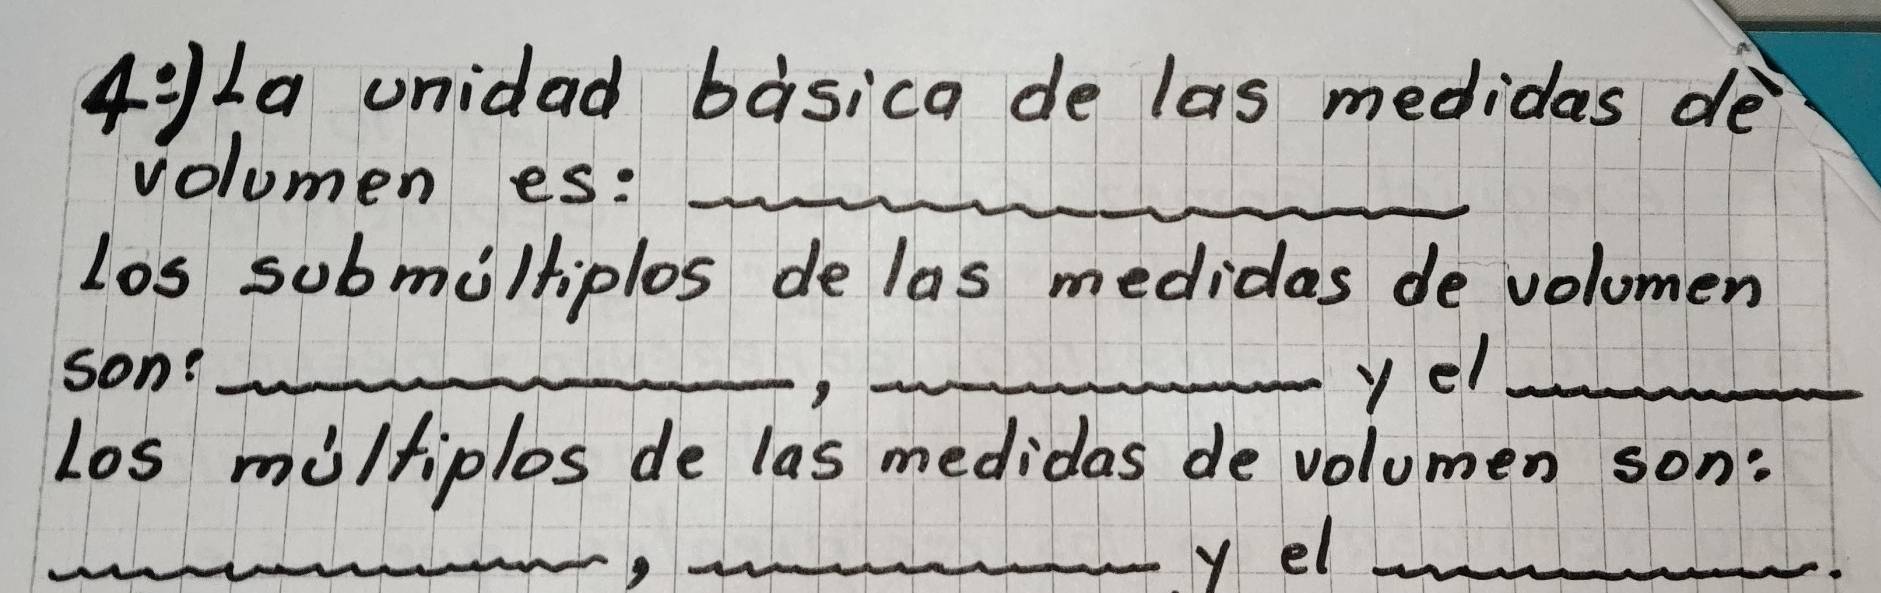 4:) La unidad básica de las medidas de
volumen es: ___________
Los submúltiplos de las medidas de volumen
son: ___________, ___________ y el ___________
Los múltiplos de las medidas de volumen son:
___________, ___________ y el ___________.